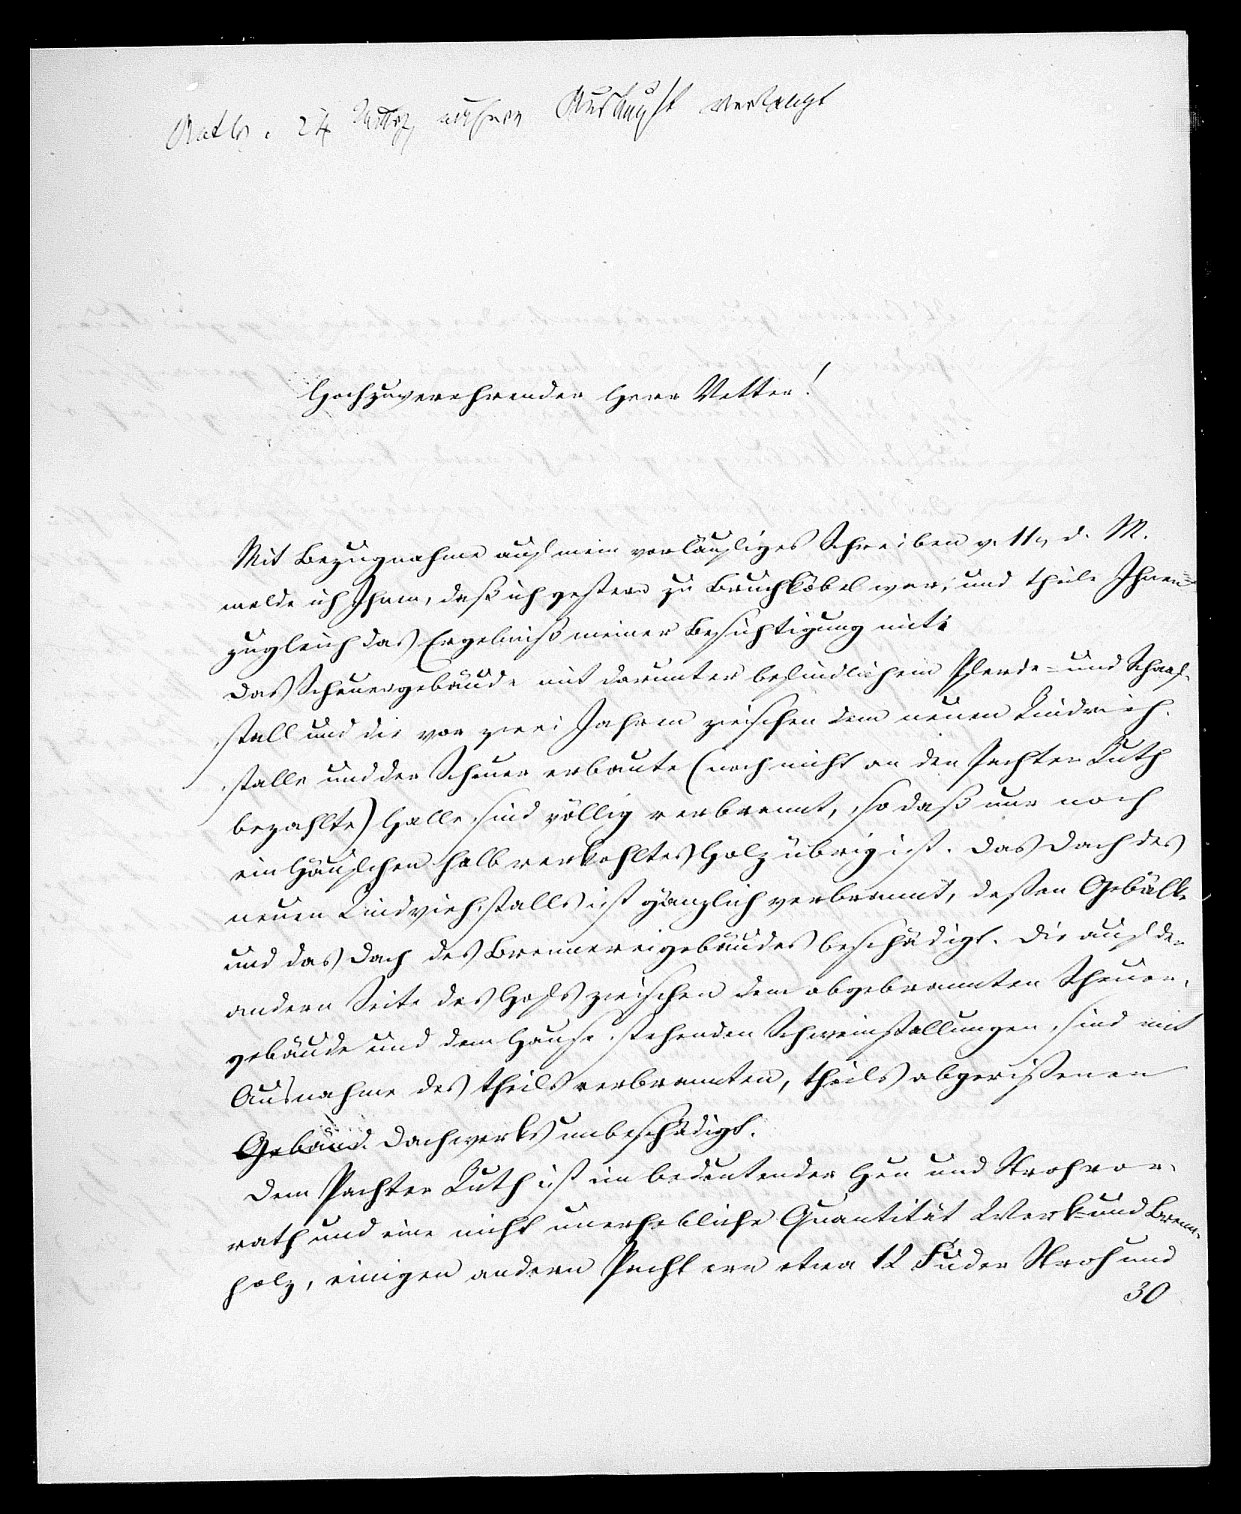 24 Auskunft verlangt
Hochzuverehrender Herr Vetter!
Mit Bezugnahme auf mein vorläufiges Schreiben v. 11n d. M.
melde ich Ihnen, daß ich gestern zu Bruchköbel war, und theile Ihnen
zugleich das Ergebniß meiner Besichtigung mit:
Das Scheuergebäude mit darunter befindlichem Pferde- und Schaaf-
stall und die vor zwei Jahren zwischen dem neuen Rindvieh-
stalle und der Scheuer erbaute (noch nicht an den Pachter Ruth
bezahlte) Halle sind völlig verbrannt, so daß nur noch
ein Häufchen halb verkohltes Holz übrig ist. Das Dach des
neuen Rindviehstalls ist gänzlich verbrannt, deßen Gebälke
und das Dach des Brennereigebäudes beschädigt. Die auf der
andern Seite des Hofs zwischen dem abgebrannten Scheuer-
gebäude und dem Hause stehenden Schweinstallungen sind mit
Ausnahme des theils verbrannten, theils abgerißenen
Gebäud Dachwerks unbeschädigt.
Dem Pachter Ruth ist ein bedeutender Heu und Strohvor-
rath und eine nicht unerhebliche Quantität Werk- und Brenn-
holz, einigen andern Pachtern etwa 12 Fuder Stroh und
30